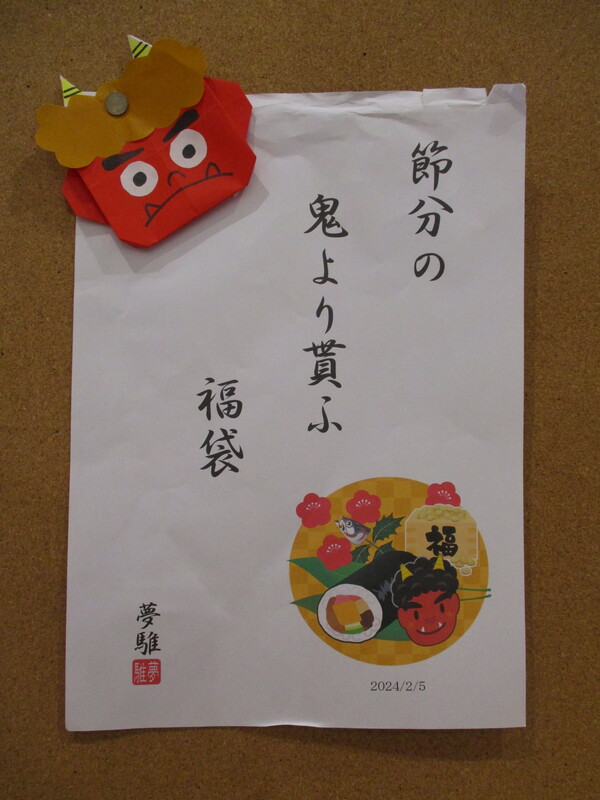 節分の
鬼より貰ふ
福袋
夢騅
夢騅
福
2024/2/5